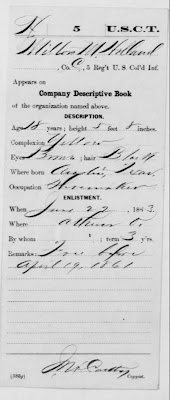 H 5 U.S.C.T.
Milton M. Holland
, Co. C, 5 Reg't U. S. Col'd Inf.
Appears on
Company Descriptive Book
of the organization named above.
DESCRIPTION.
Age 18 years; height 5 feet 8 inches.
Complexion Yellow
Eyes Brown; hair Black
Where born Austin, Texas
Occupation Shoemaker
ENLISTMENT.
When June 22, 1863.
Where Athens O.
By whom ; term 3 y'rs.
Remarks: Free before
April 19, 1861
Copyist.